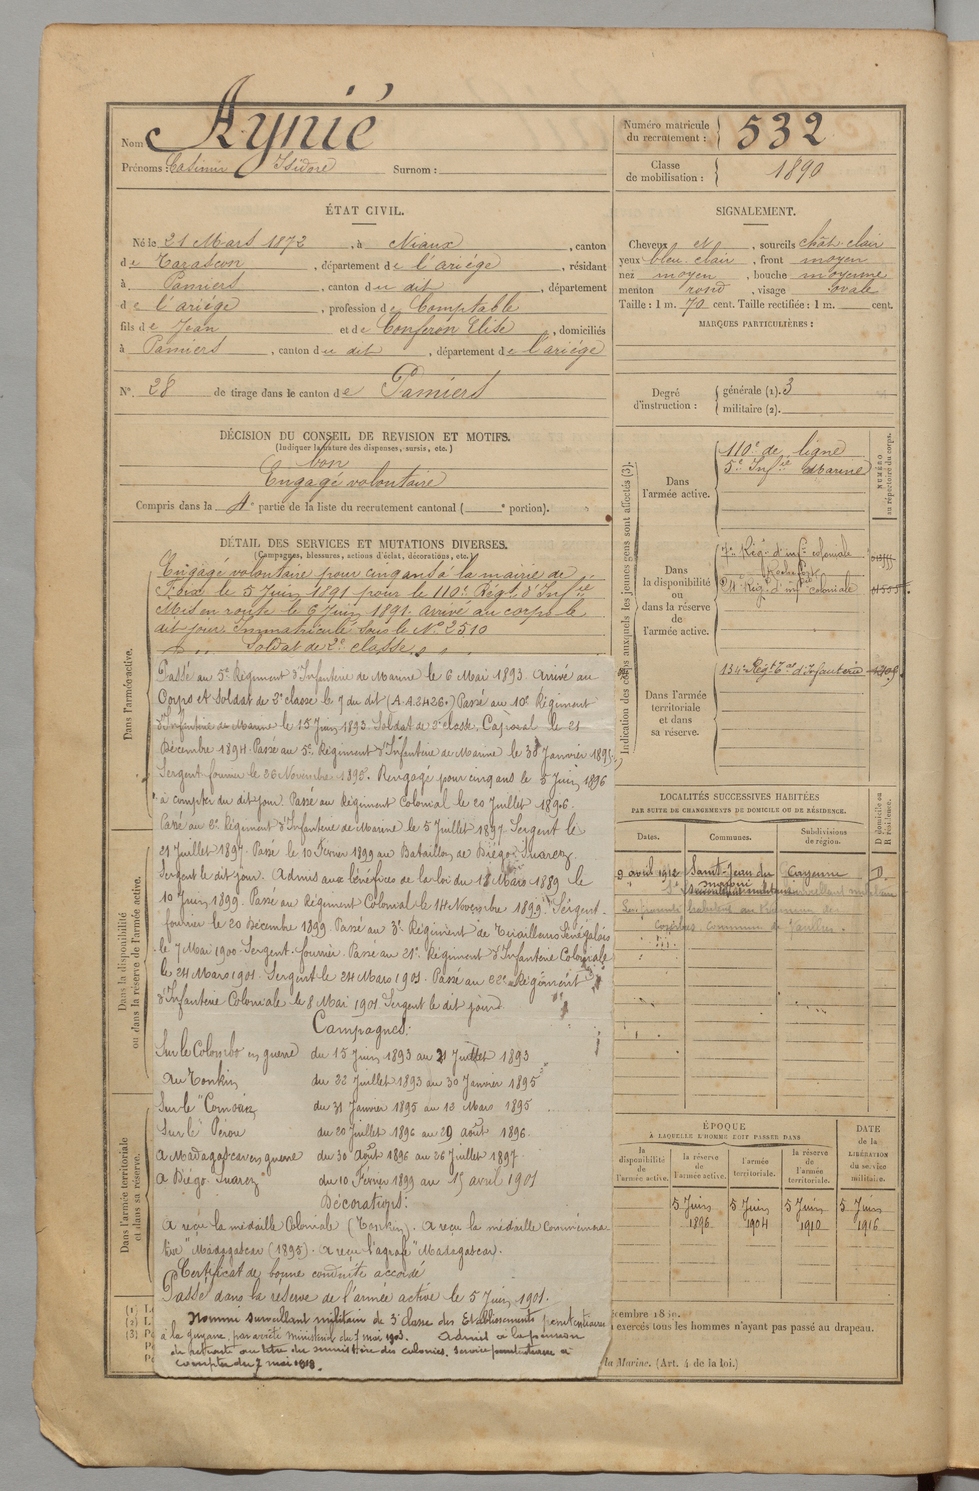 Nom Aynié
Prénoms : Casimir Isidore Surnom :
Numéro matricule du recrutement : 532
Classe de mobilisation : 1890
ÉTAT CIVIL.
Né le 21 Mars 1872, à Niaux, canton
de Tarascon, département de l'ariége, résidant
à Pamiers, canton du dit, département
de l'ariége, profession de Comptable
fils de Jean et de Conferon Elise, domiciliés
à Pamiers, canton du dit, département de l'ariége
N° 28 de tirage dans le canton de Pamiers
SIGNALEMENT.
Cheveux et, sourcils chât. clair
yeux bleu clair, front moyen
nez moyen, bouche moyenne
menton rond, visage ovale
Taille : 1 m. 70 cent. Taille rectifiée : 1 m. cent.
MARQUES PARTICULIÈRES :
Degré d'instruction : générale (1). 3
militaire (2).
DÉCISION DU CONSEIL DE REVISION ET MOTIFS.
(Indiquer la nature des dispenses, sursis, etc.)
bon
Engagé volontaire
Compris dans la 4e partie de la liste du recrutement cantonal ( e portion).
DÉTAIL DES SERVICES ET MUTATIONS DIVERSES.
(Campagnes, blessures, actions d'éclat, décorations, etc.)
Dans l'armée active.
Engagé volontaire pour cinq ans à la mairie de
Foix le 5 Juin 1891 pour le 110e Régt d'Infie
Mis en route le 6 Juin 1891. arrivé au corps le
dit jour. Immatriculé sous le No 2510
Soldat de 2e classe
Passé au 5e Régiment d'Infanterie de Marine le 6 Mai 1893. Arrivé au
Corps et Soldat de 2e classe le 9 du dit (A.A. 2426.) Passé au 10e Régiment
d'Infanterie de Marine le 15 Juin 1893. Soldat de 2e classe. Caporal le 21
Décembre 1894. Passé au 5e Régiment d'Infanterie de Marine le 30 Janvier 1895
Sergent fourrier le Novembre 1895. Rengagé pour cinq ans le 5 Juin 1896
à compter du dit jour. Passé au Régiment Colonial le 20 Juillet 1896.
Passé au Régiment d'Infanterie de Marine le 5 Juillet 1897 Sergent le
21 Juillet 1897. Passé le 10 Février 1899 au Bataillon de Diégo-Suarez
Sergent le dit jour. Admis aux bénéfices de la loi du 18 Mars 1889 le
10 Juin 1899. Passé au Régiment Colonial le 14 Novembre 1899. Sergent-
fourrier le 20 Décembre 1899. Passé au 3e Régiment de Tirailleurs Sénégalais
le 7 Mai 1900. Sergent-fourrier. Passé au 21e Régiment d'Infanterie Coloniale
le 24 Mars 1901. Sergent le 24 Mars 1901. Passé au 22e Régiment
d'Infanterie Coloniale le 8 Mai 1901 Sergent le dit jour.
Campagnes:
Sur le Colombo en guerre du 15 Juin 1893 au 21 Juillet 1893
Au Tonkin du 22 Juillet 1893 au 30 Janvier 1895
Sur le "Comorin du 31 Janvier 1895 au 12 Mars 1895
Sur le "Pérou du 20 Juillet 1896 au 29 août 1896.
A Madagascar en guerre du 30 Août 1896 au 26 Juillet 1897
A Diégo-Suarez" du 10 Février 1899 au 15 avril 1901
Décorations:
A reçu la médaille Coloniale (Tonkin). A reçu la médaille Commémora-
tive "Madagascar (1895). A reçu l'agrafe "Madagascar.
Certificat de bonne conduite accordé
Passé dans la réserve de l'armée active le 5 Juin 1901.
Nommé surveillant militaire de 3e classe des Etablissements pénitentiaires
à la guyane, par arrêté ministériel du 7 mai 1903. Admis à la pension
de retraite au titre du ministère des colonies, service pénitentiaire à
compter du 7 mai 1918.
Dans la disponibilité ou dans la réserve de l'armée active.
Dans l'armée territoriale et dans sa réserve.
Indication des corps auxquels les jeunes gens sont affectés (3).
NUMÉRO au répertoire du corps.
Dans l'armée active.
110e de ligne
5e Infie Marine
Dans la disponibilité ou dans la réserve de l'armée active.
7e Rég. d'infie coloniale
Rochefort
Rég. d'infie coloniale
Dans l'armée territoriale et dans sa réserve.
134e Régt Tal d'Infanterie
LOCALITÉS SUCCESSIVES HABITÉES
PAR SUITE DE CHANGEMENTS DE DOMICILE OU DE RÉSIDENCE.
Dates. Communes. Subdivisions de région. D domicile ou R résidence.
9 avril 1912 Saint-Jean du Cayenne D.
maroni
ÉPOQUE
À LAQUELLE L'HOMME DOIT PASSER DANS
la disponibilité de l'armée active.
la réserve de l'armée active.
l'armée territoriale.
la réserve de l'armée territoriale.
DATE de la LIBÉRATION du service militaire.
5 Juin 1896
5 Juin 1904
5 Juin 1910
5 Juin 1916
(1)
(2)
(3)
exercés tous les hommes n'ayant pas passé au drapeau.
la Marine. (Art. 4 de la loi.)